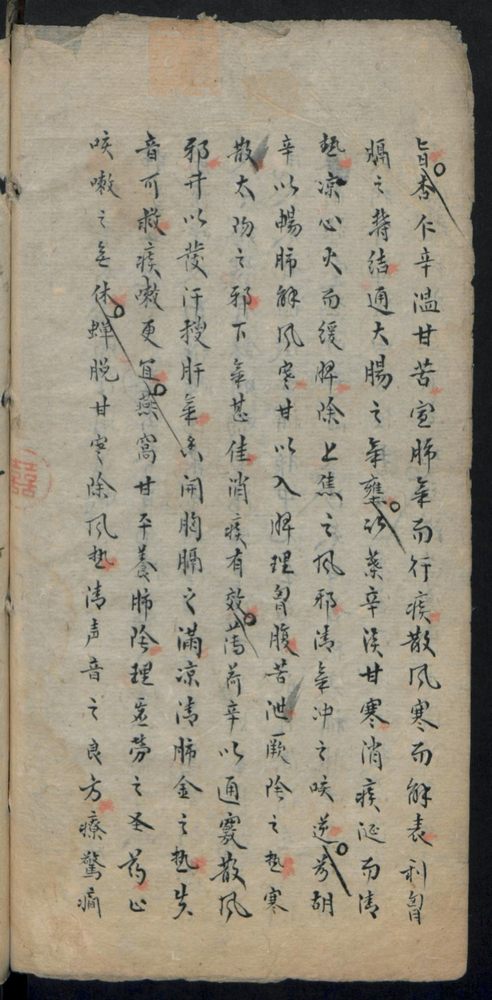 旨杏仁辛温甘苦宣肺氣而行痰散风寒而解表利胷
膈之結通大腸之氣壅菜辛淡甘寒消痰涎而清
熱凉心火而缓脾除上焦之风邪清氣冲之咳逆芳胡
辛以畅肺解风寒甘以入脾理胷腹苦泄厥阴之热寒
散太阳之邪下氣甚佳消痰有效薄荷辛以通窍散风
邪升以發汗搜肝氣開胸膈之满凉清肺金之热失
音可救痰嗽更宜燕窩甘平養肺阴理虚劳之圣药止
咳嗽之無休蝉脱甘寒除风热清声音之良方療驚癇